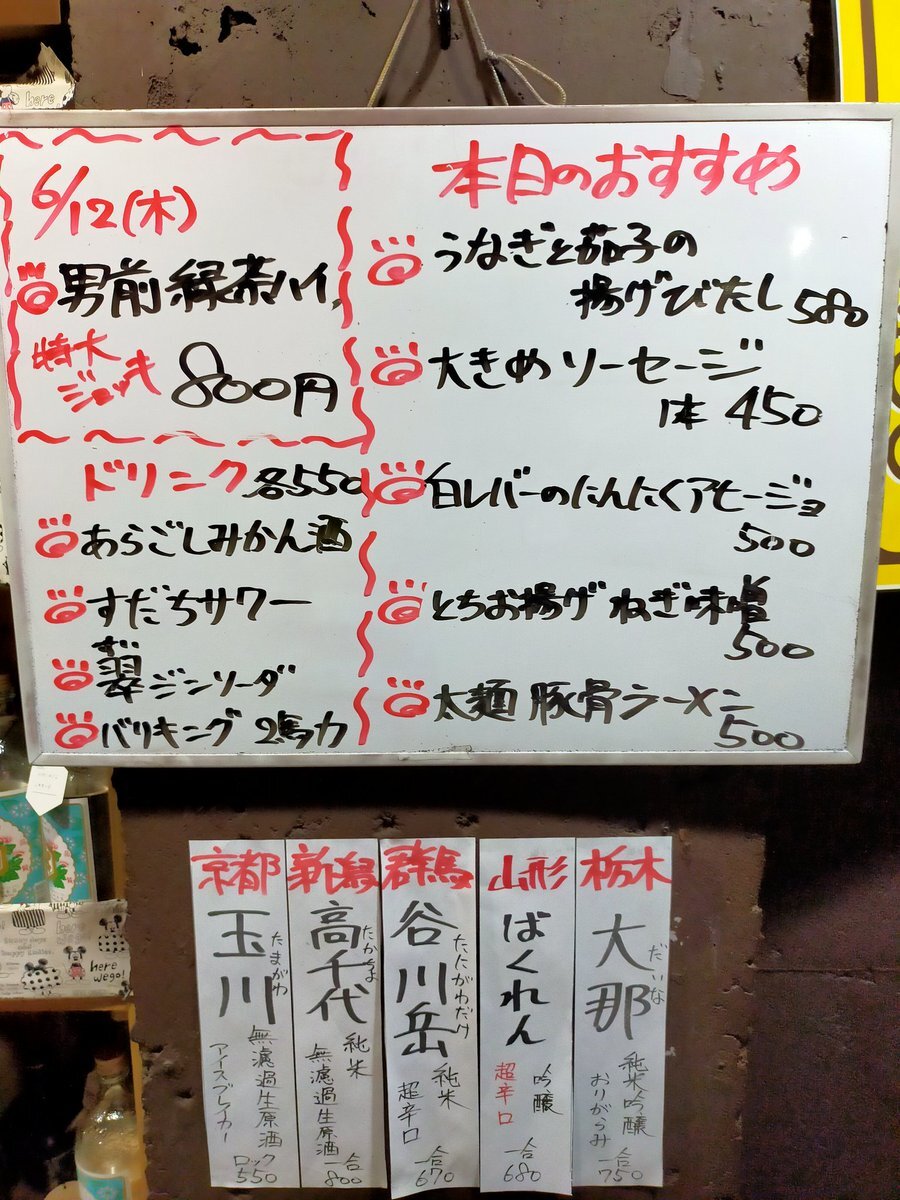 6/12(木)
男前 緑茶ハイ
特大
ジョッキ
800円
ドリンク 各550
あらごしみかん酒
すだちサワー
すい
翠ジンソーダ
バリキング 2馬力
本日のおすすめ
うなぎと茄子の
揚げびたし 580
大きめソーセージ
1本 450
白レバーのにんにくアヒージョ
500
とちお揚げ ねぎ味噌
500
太麺 豚骨ラーメン
500
京都
玉川
たまがわ
無濾過生原酒
アイスブレイカー
ロック
550
新潟
高千代
たかちよ
純米
無濾過生原酒
一合
800
群馬
谷川岳
たにがわだけ
純米
超辛口
一合
670
山形
ばくれん
吟醸
超辛口
一合
680
栃木
大那
だいな
純米吟醸
おりがらみ
一合
750
here
here
wego!